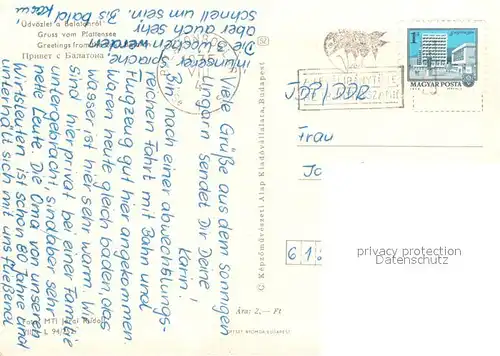 Üdvözlet a Balatonról
Gruss vom Plattensee
Greetings from
Привет с Балатона
Viele Grüße aus dem sonnigen
Ungarn sendet Dir Deine
Karin!
Bin nach einer abwechslungs-
reichen Fahrt mit Bahn und
Flugzeug gut hier angekommen.
Waren heute gleich baden, das
Wasser ist hier sehr warm. Wir
sind hier privat bei einer Familie
untergebracht, sind aber sehr
nette Leute. Die Oma von unseren
Wirtsleuten ist schon 80 Jahre und
unterhält sich mit uns fließend
in unserer Sprache.
Die 3 Wochen werden
aber auch sehr
schnell um sein. Bis bald
C. Képzőművészeti Alap Kiadóvállalata, Budapest
Ára: 2,— Ft
MTI
L 94/
1 Ft
MAGYAR POSTA
JOP/DDR
Frau
Jo
6 1 8
privacy protection
Datenschutz